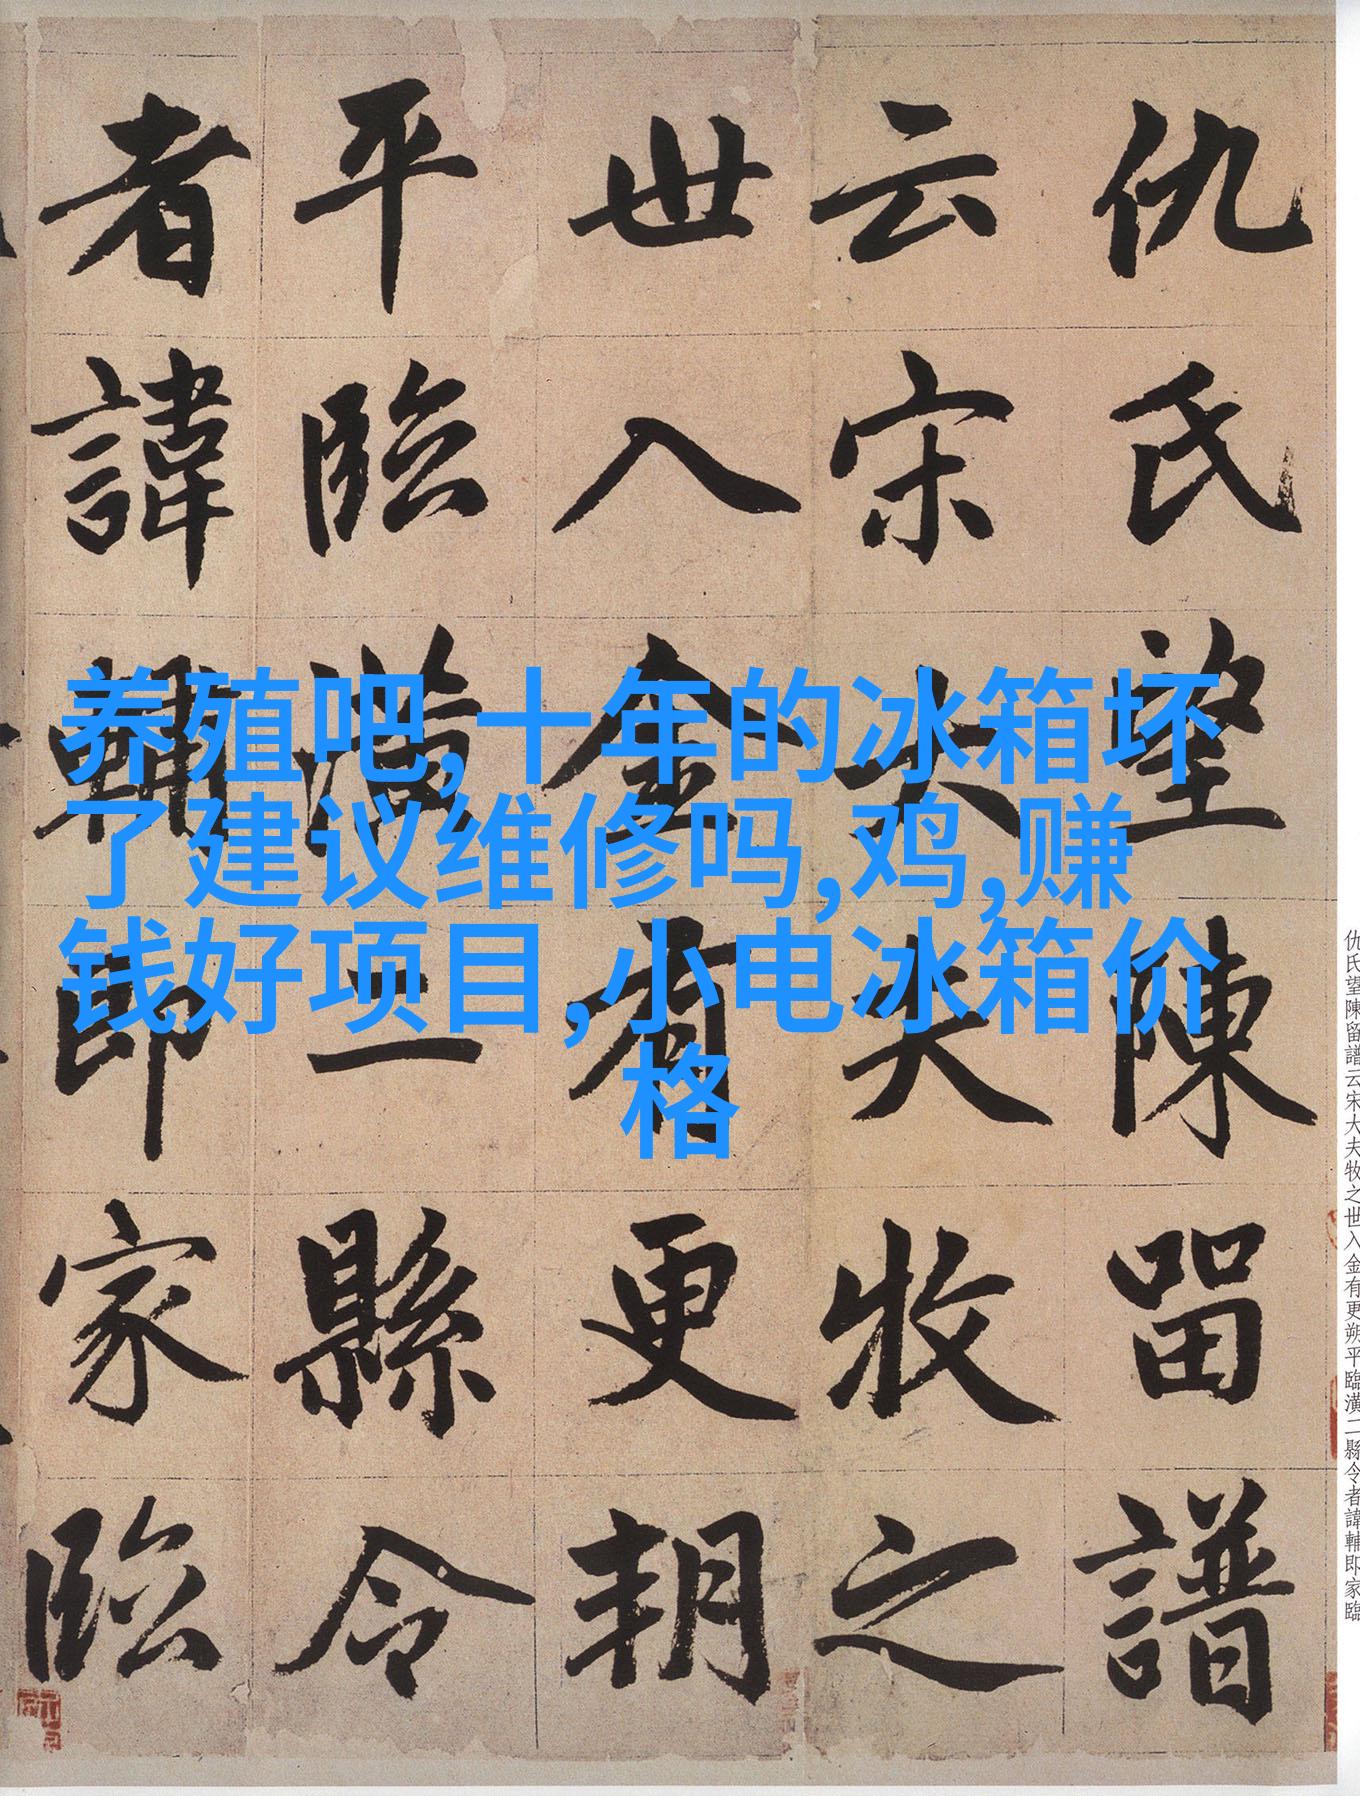 养殖吧,十年的冰箱坏
了建议维修吗,鸡,赚
钱好项目,小电冰箱价
格
仇氏望陳留譜
云宋大夫牧之
世入金有更朔
平臨潢二縣令
者諱輔即家臨
仇氏望陳留譜云宋大夫牧之世入金有更朔平臨潢二縣令者諱輔即家臨